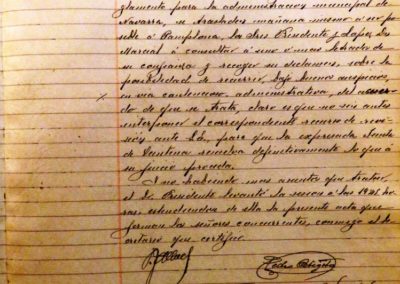 glamento para la administracion municipal de
Navarra, se trasladen mañana mismo a ser po-
sible á Pamplona, los Sres Presidente y Lopez, Dn
Marcial á consultar á uno ó mas letrados de
su confianza y recoger su dictamen, sobre la
posibilidad de recurrir, bajo buenos auspicios,
en via contencioso, administrativa, del acuer-
do de que se trata, claro es que no sin antes
interponer el correspondiente recurso de repo-
sición ante la para que la expresada Junta
de resuelva definitivamente lo que á
su juicio proceda.
Y no habiendo mas asuntos que tratar,
el Sr. Presidente levantó la sesion á las ho-
ras, estendiendose de ella la presente acta que
firman los señores concurrentes, conmigo el Se-
cretario que certifico.
Pedro